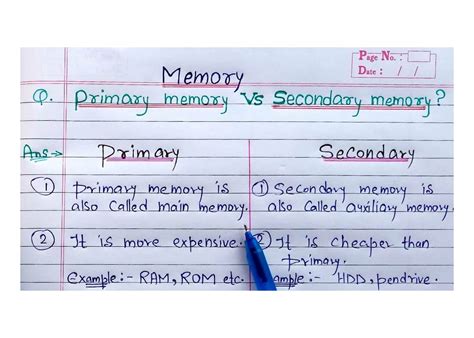 Page No. :
Date : / /
Memory
Q. Primary memory Vs Secondary memory?
Ans→ Primary
Secondary
① Primary memory is
also Called main memory.
② It is more expensive.
Example:- RAM, ROM etc.
① Secondary memory is
also Called auxiliary memory.
② It is cheaper than
primary.
ample:- HDD, pendrive.